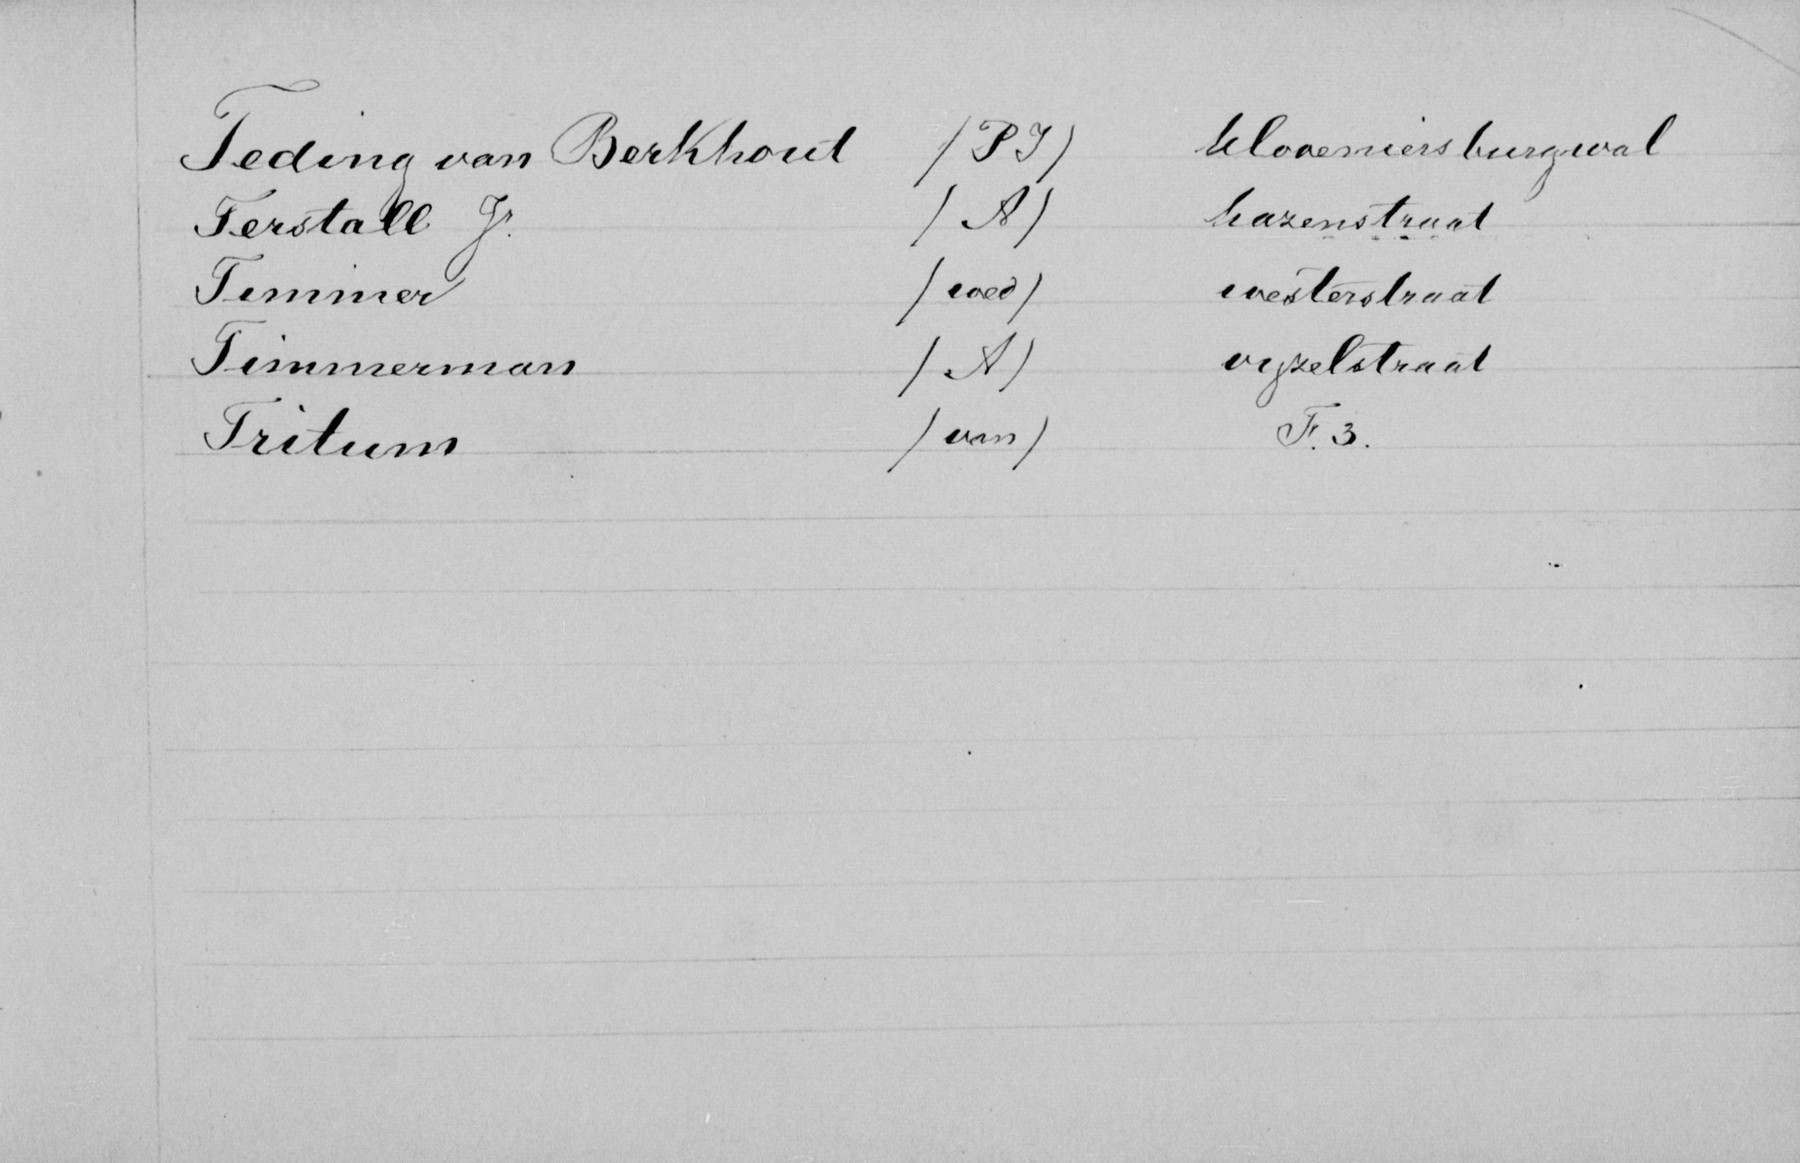 Teding van Berkhout (PJ) kloveniersburgwal
Terstall Jr. (A) hazenstraat
Timmer (wed) westerstraat
Timmerman (A) vyzelstraat
Tritum (van) F. 3.